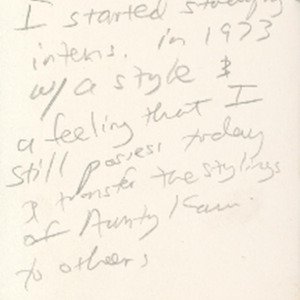 I started studying
intens. in 1973
w/ a style &
a feeling that I
still possess today
& transfer the stylings
of Aunty Kau.
to others